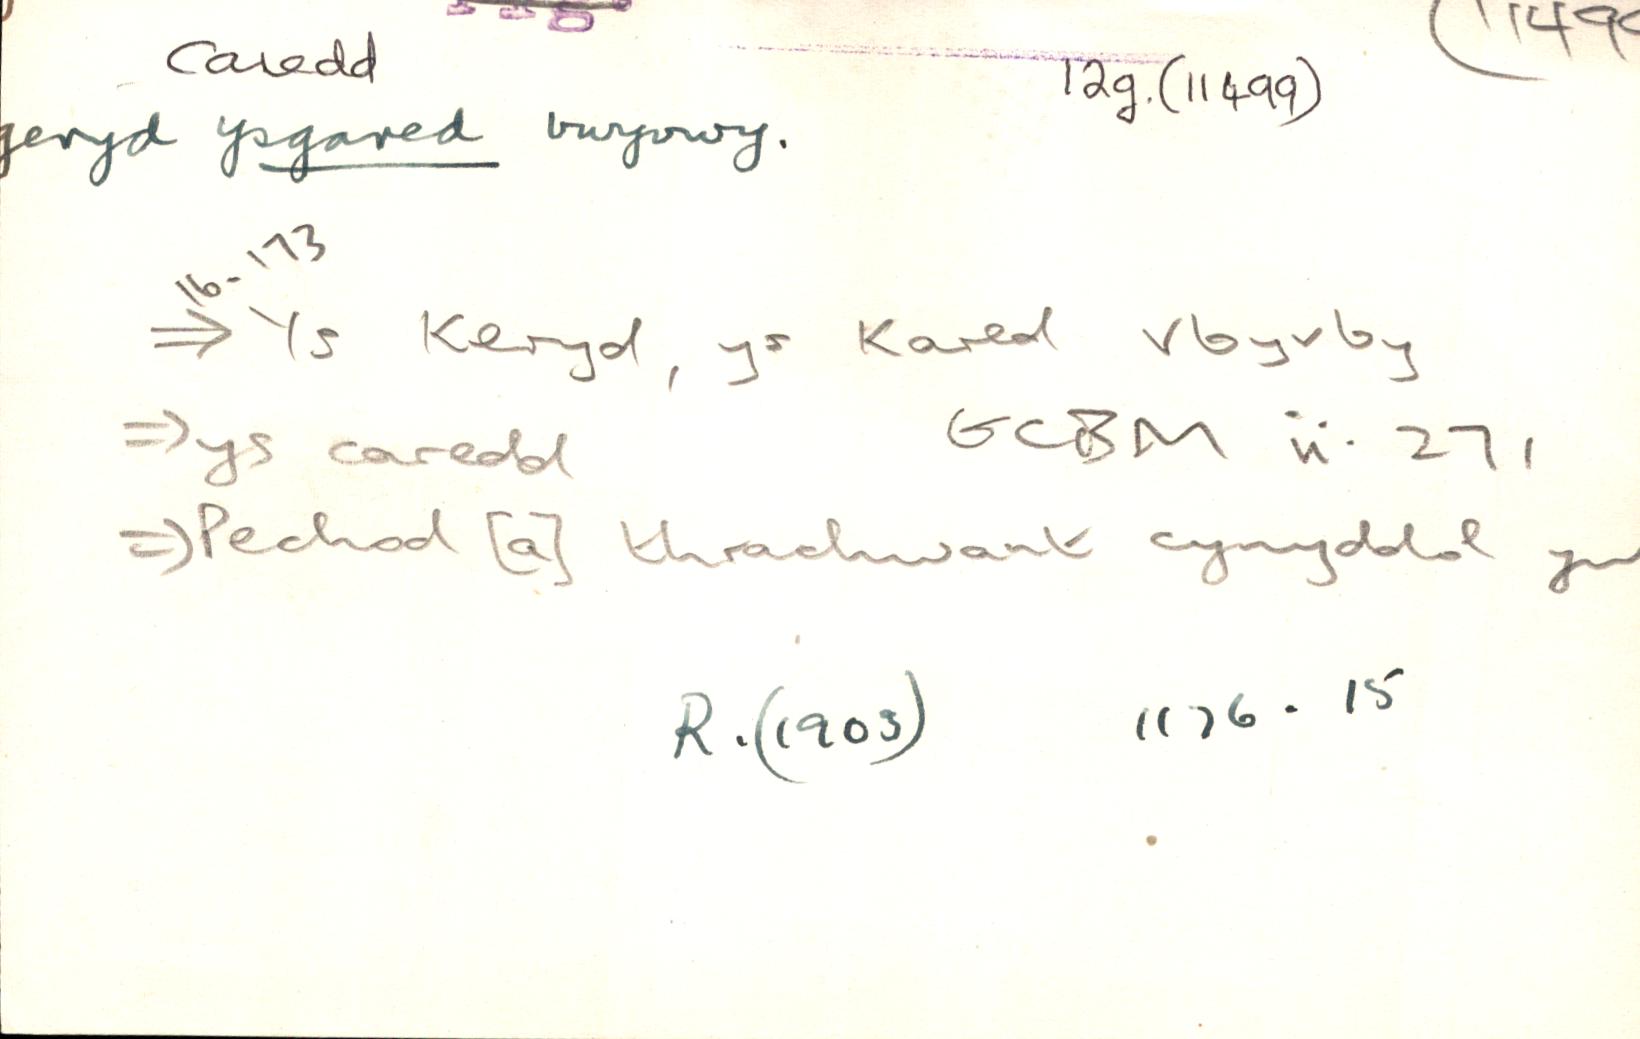 caredd 12g.(11499)
geryd ysgared vwyvwy.
16.173
⇒ Ys Keryd, ys Kared vbyvby
⇒ ys caredd GCBM ii. 271
⇒ Pechod [a] thrachwant cynyddol
R.(1903) 1176.15